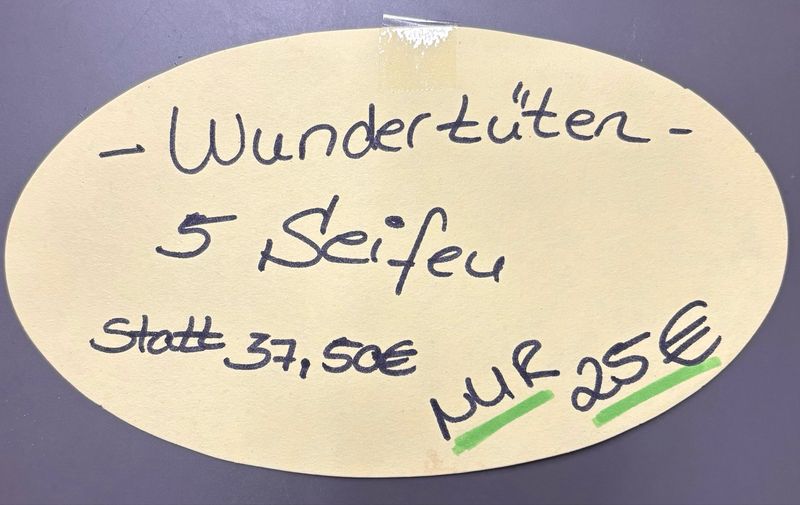 - Wundertüten -
5 Seifen
statt 37,50€
NUR 25€